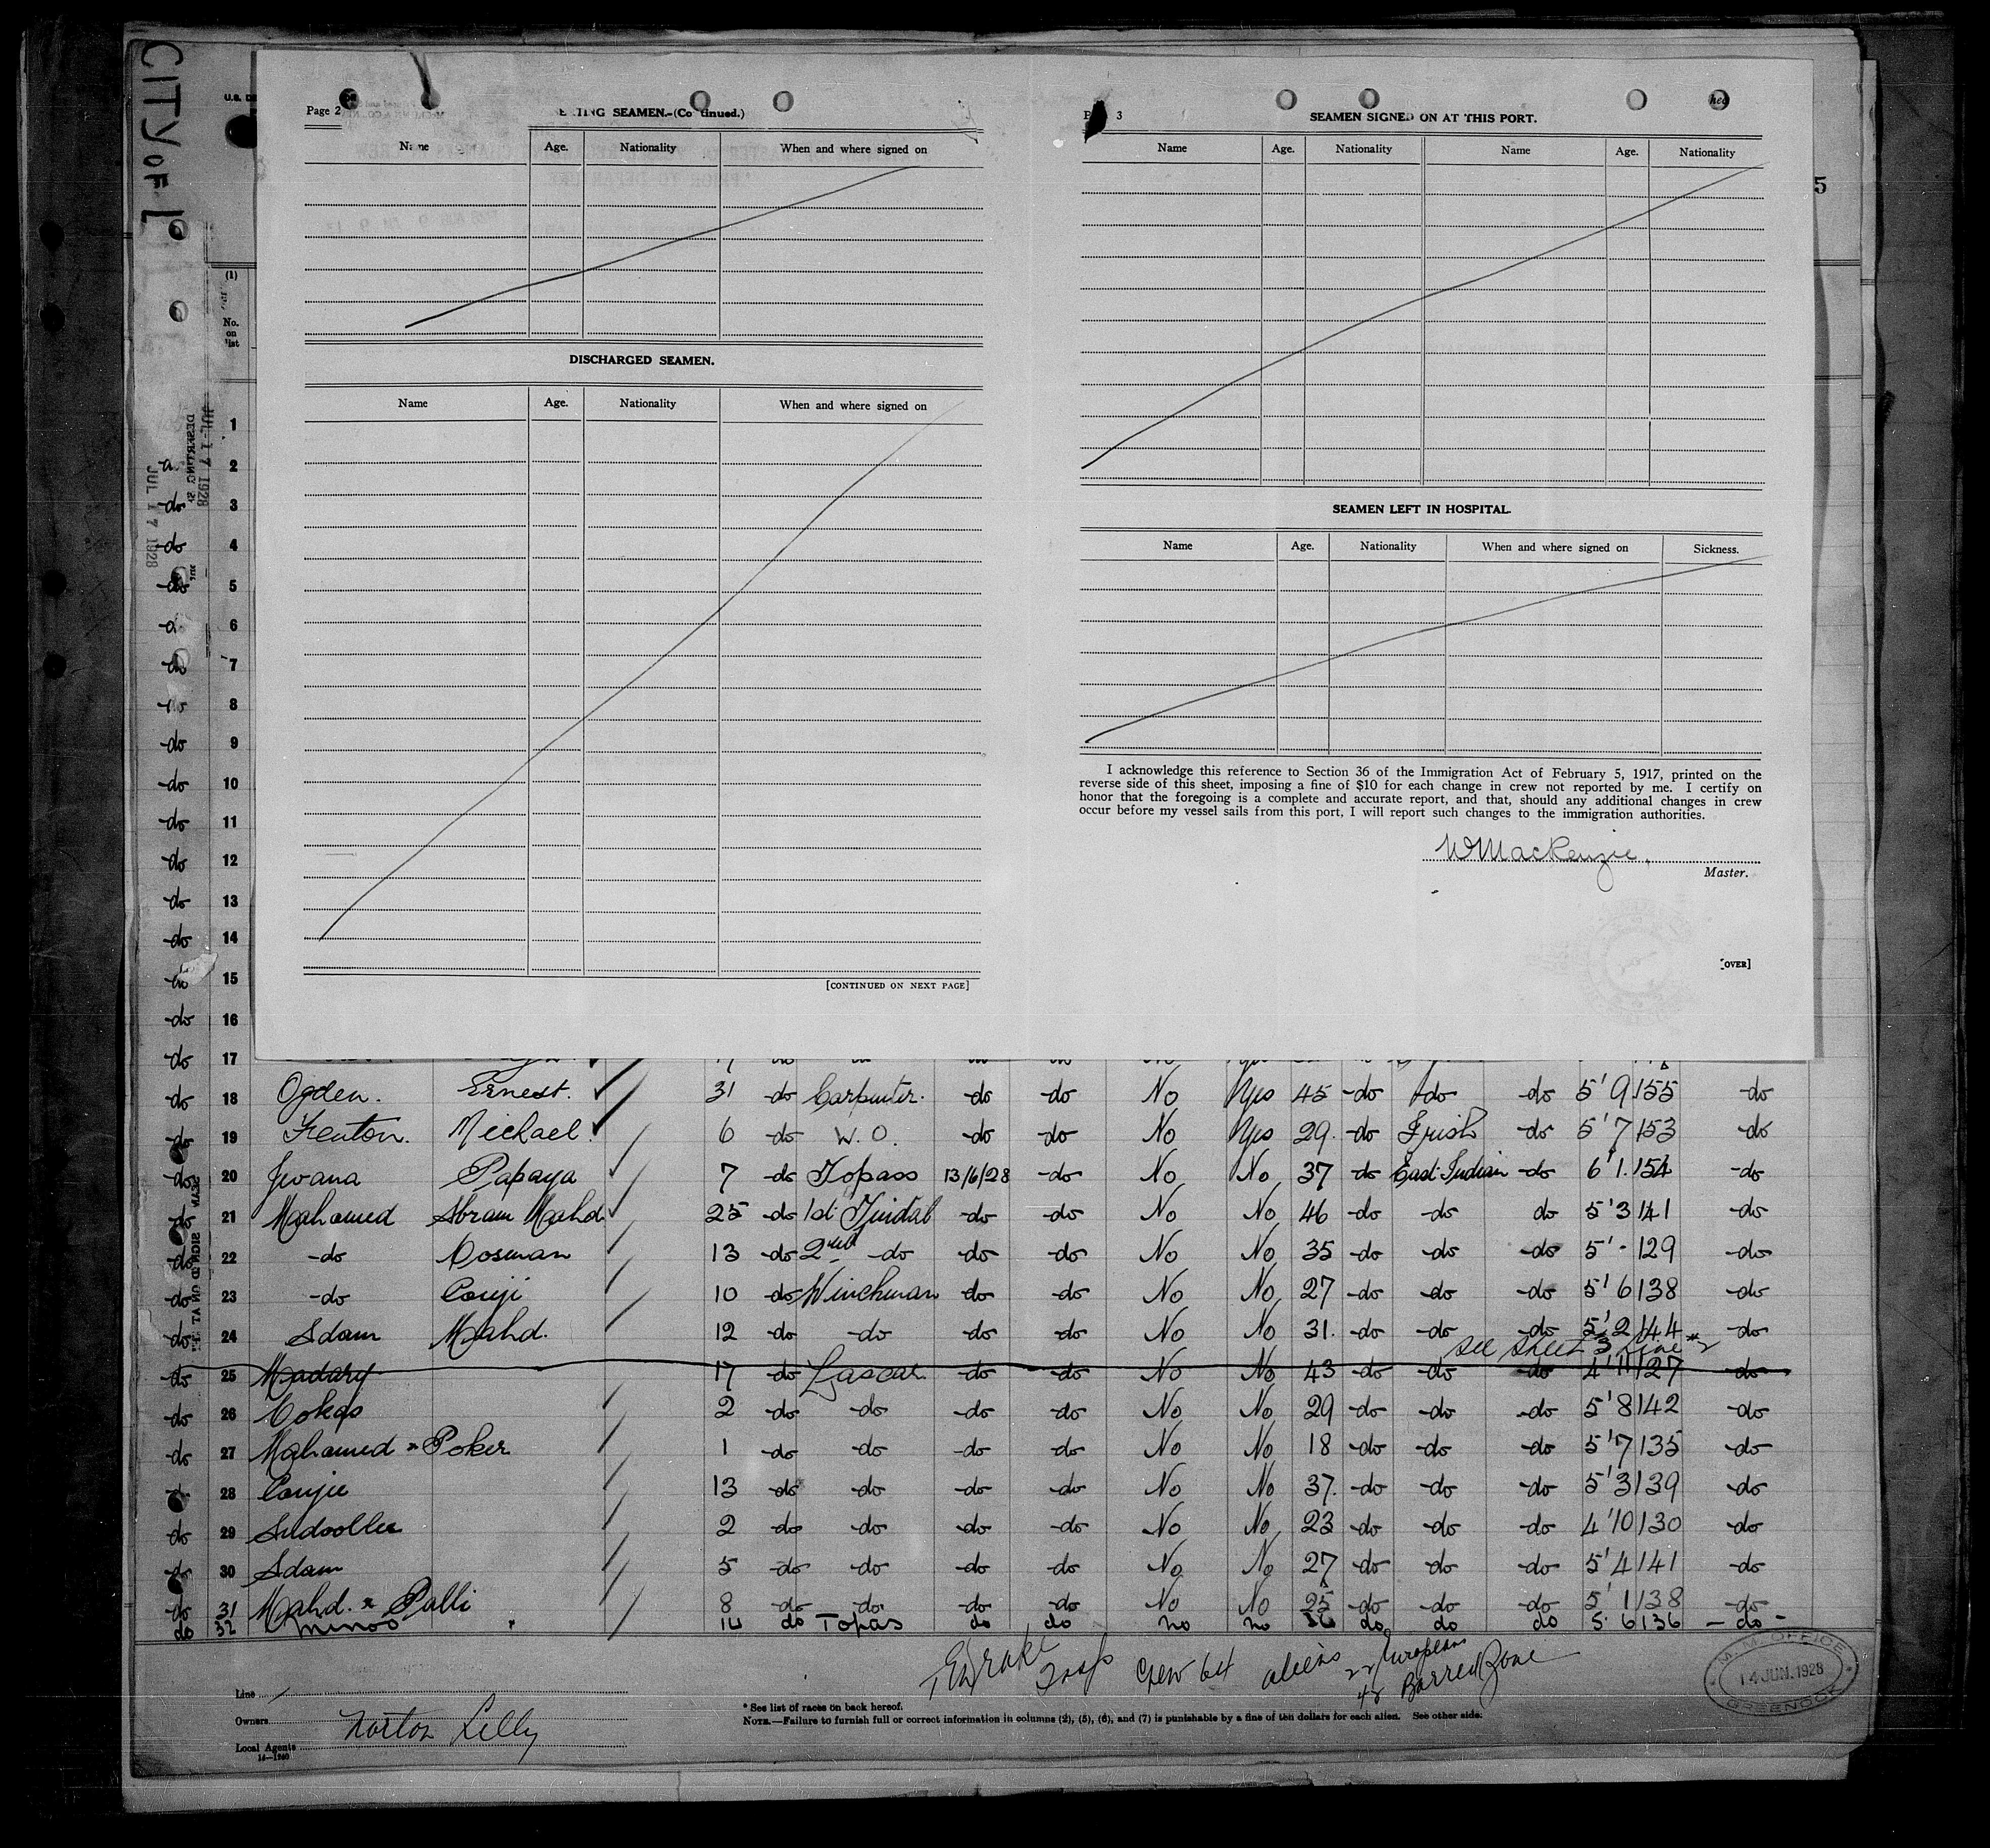 CITY OF L
Page 2
TING SEAMEN.-(Co tinued.)
Name Age. Nationality When and where signed on
DISCHARGED SEAMEN.
Name Age. Nationality When and where signed on
[CONTINUED ON NEXT PAGE]
3
SEAMEN SIGNED ON AT THIS PORT.
Name Age. Nationality Name Age. Nationality
SEAMEN LEFT IN HOSPITAL.
Name Age. Nationality When and where signed on Sickness.
I acknowledge this reference to Section 36 of the Immigration Act of February 5, 1917, printed on the
reverse side of this sheet, imposing a fine of $10 for each change in crew not reported by me. I certify on
honor that the foregoing is a complete and accurate report, and that, should any additional changes in crew
occur before my vessel sails from this port, I will report such changes to the immigration authorities.
WMackenzie
Master.
[OVER]
5
(1)
No.
on
list
JUL 17 1928
JUL 17 1928
1
2
do 3
do 4
do 5
6
do 7
8
do 9
do 10
do 11
do 12
do 13
do 14
do 15
do 16
do 17
do 18 Ogden. Ernest. 31 do Carpenter. do do No Yes 45 do do do 5'9 155 do
do 19 Fenton. Michael. 6 do W.O. do do No Yes 29. do Irish do 5'7 153 do
do 20 Jwana Papaya 7 do Topass 13/6/28 do No No 37 do East Indian do 6'1. 154 do
do 21 Mahamed Abram Mahd 25 do 1st Tindal do do No No 46 do do do 5'3 141 do
do 22 do Cosman 13 do 2nd do do do No No 35 do do do 5'- 129 do
do 23 do Couji 10 do Winchman do do No No 27 do do do 5'6 138 do
do 24 Adam Mahd. 12 do do do do No No 31. do do do 5'2 144 do
See Sheet 3 Line 2
do 25 Madary 17 do Lascar do do No No 43 do do do 4'11 127 do
do 26 2 do do do do No No 29 do do do 5'8 142 do
do 27 Mahamed Poker 1 do do do do No No 18 do do do 5'7 135 do
do 28 Coujie 13 do do do do No No 37. do do do 5'3 139 do
do 29 2 do do do do No No 23 do do do 4'10 130 do
do 30 Adam 5 do do do do No No 27 do do do 5'4 141 do
do 31 Mahd. Palli 8 do do do do No No 25 do do do 5'1 138 do
do 32 Minoo do Topas do do no no do do do 5.6 136 do
Crew 64 aliens 22 Europeans
42 Barred Zone
Line
Owners
Local Agents Norton Lilly
14—1240
* See list of races on back hereof.
NOTE.—Failure to furnish full or correct information in columns (2), (5), (6), and (7) is punishable by a fine of ten dollars for each alien. See other side.
M.M. OFFICE
14 JUN. 1928
GREENOCK